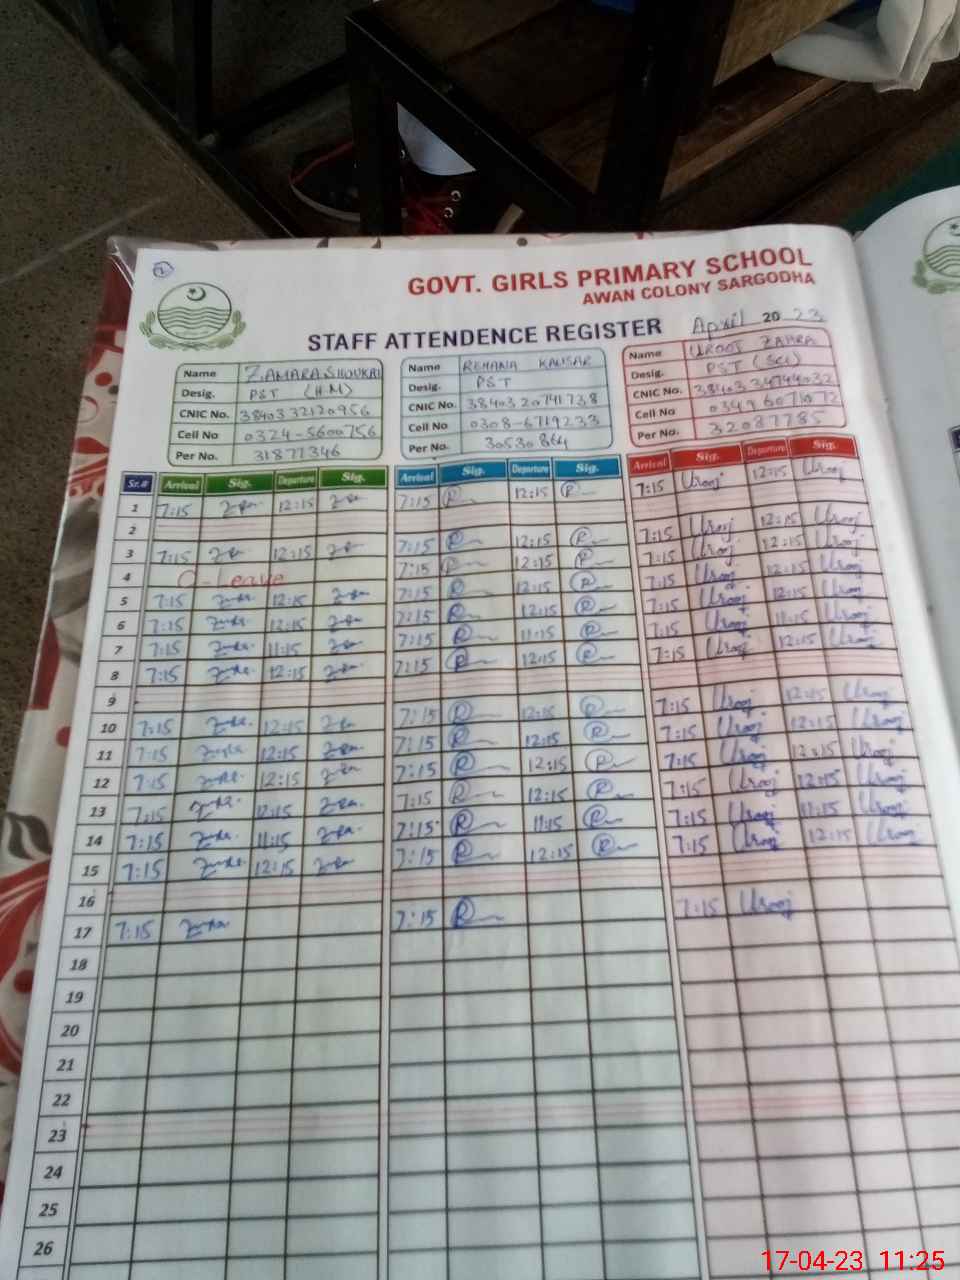 GOVT. GIRLS PRIMARY SCHOOL
AWAN COLONY SARGODHA
STAFF ATTENDENCE REGISTER April 20 23
Name ZAMARA SHOUKAT Name REHANA KAUSAR Name UROOJ ZAHRA
Desig. PST (H.M) Desig. PST Desig. PST (Sci)
CNIC No. 3840332120956 CNIC No. 3840320741738 CNIC No. 3840334744032
Cell No 0324-5600756 Cell No 0308-6719233 Cell No 03496071072
Per No. 31877346 Per No. 30530864 Per No. 32087785
Sr.# Arrival Sig. Departure Sig. Arrival Sig. Departure Sig. Arrival Sig. Departure Sig.
1 7:15 12:15 7:15 R 12:15 R 7:15 Urooj 12:15 Urooj
2
3 7:15 12:15 7:15 R 12:15 R 7:15 Urooj 12:15 Urooj
4 C-Leave 7:15 R 12:15 R 7:15 Urooj 12:15 Urooj
5 7:15 12:15 7:15 R 12:15 R 7:15 Urooj 12:15 Urooj
6 7:15 12:15 7:15 R 12:15 R 7:15 Urooj 12:15 Urooj
7 7:15 11:15 7:15 R 11:15 R 7:15 Urooj 11:15 Urooj
8 7:15 12:15 7:15 R 12:15 R 7:15 Urooj 12:15 Urooj
9
10 7:15 12:15 7:15 R 12:15 R 7:15 Urooj 12:15 Urooj
11 7:15 12:15 7:15 R 12:15 R 7:15 Urooj 12:15 Urooj
12 7:15 12:15 7:15 R 12:15 R 7:15 Urooj 12:15 Urooj
13 7:15 12:15 7:15 R 12:15 R 7:15 Urooj 12:15 Urooj
14 7:15 11:15 7:15 R 11:15 R 7:15 Urooj 11:15 Urooj
15 7:15 12:15 7:15 R 12:15 R 7:15 Urooj 12:15 Urooj
16
17 7:15 7:15 R 7:15 Urooj
18
19
20
21
22
23
24
25
26
17-04-23 11:25